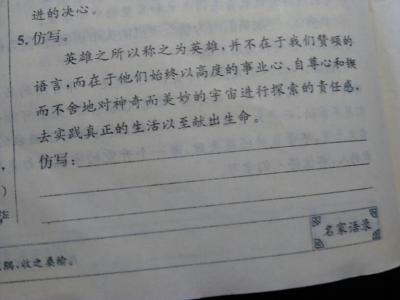 进的决心。
5.仿写。
英雄之所以称之为英雄,并不在于我们赞颂的
语言,而在于他们始终以高度的事业心、自尊心和锲
而不舍地对神奇而美妙的宇宙进行探索的责任感,
去实践真正的生活以至献出生命。
仿写:
名家语录
隅,收之桑榆。